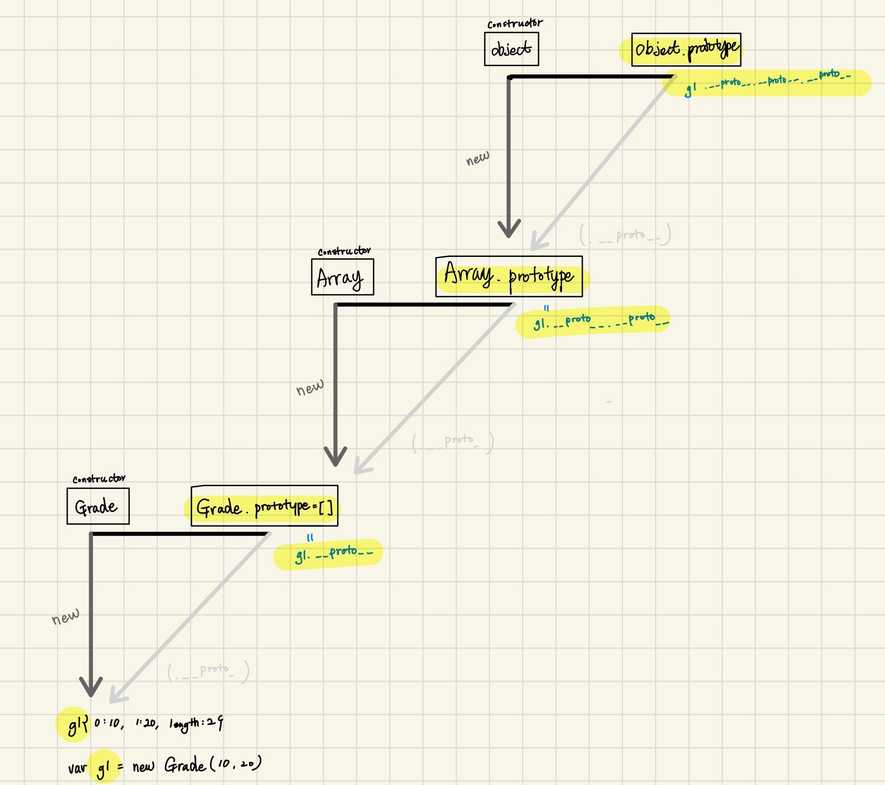 constructor
object
Object.prototype
g1.__proto__.__proto__.__proto__
new
(.__proto__)
constructor
Array
Array.prototype
||
g1.__proto__.__proto__
new
(.__proto_)
constructor
Grade
Grade.prototype=[]
||
g1.__proto__
new
(.__proto_)
g1{ 0:10, 1:20, length:2}
var g1 = new Grade(10, 20)